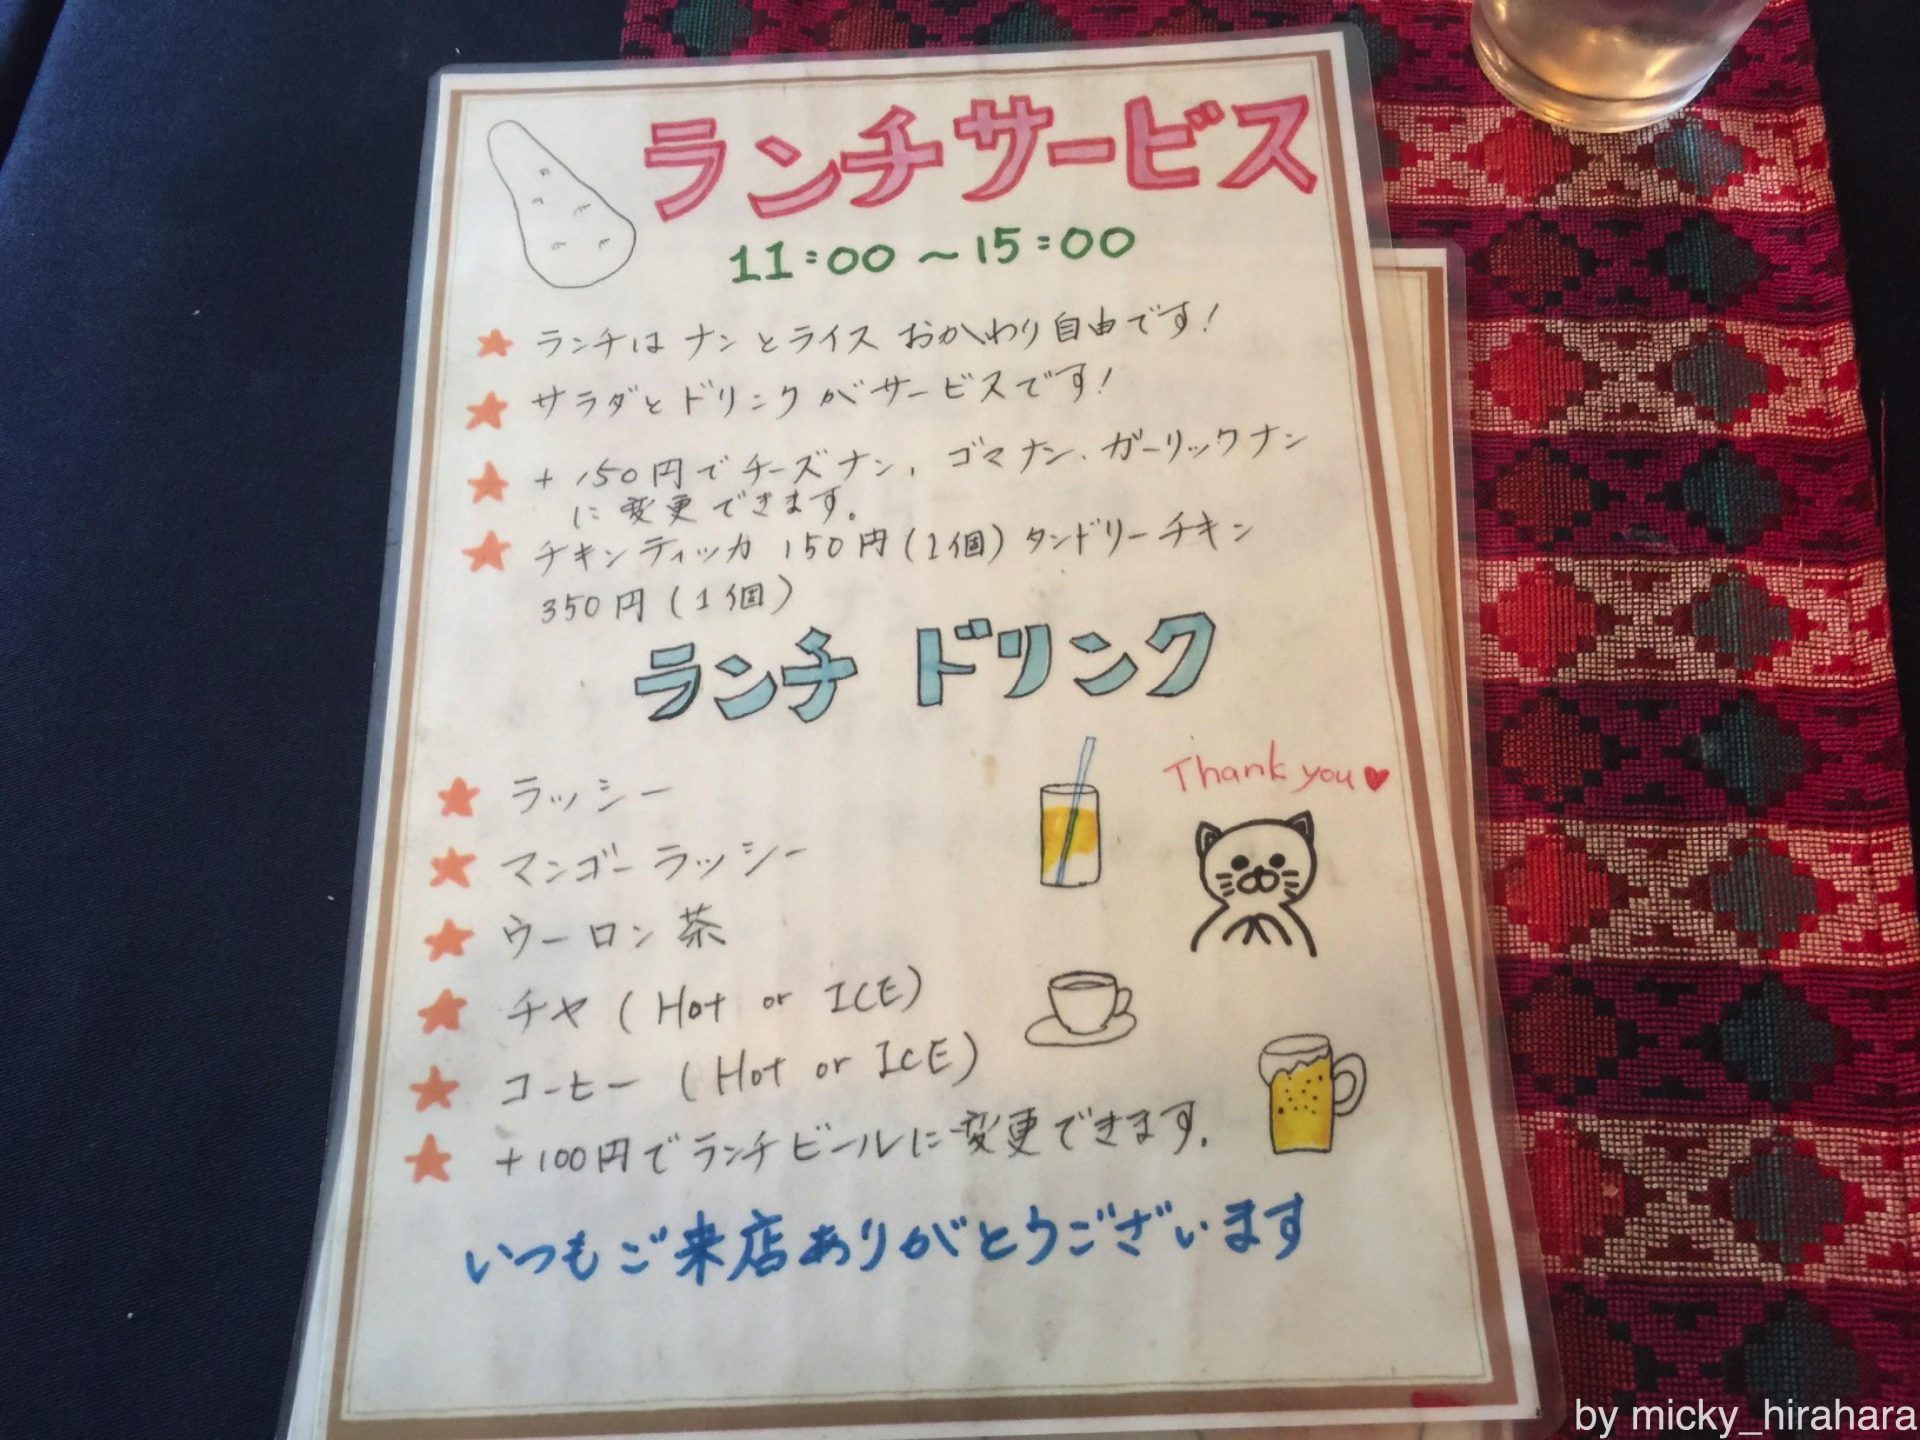 ランチサービス
11:00～15:00
ランチは ナンとライス おかわり自由です!
サラダとドリンクがサービスです!
+150円でチーズナン、ゴマナン、ガーリックナン
に変更できます。
チキンティッカ 150円(1個) タンドリーチキン
350円(1個)
ランチ ドリンク
ラッシー
Thank you♥
マンゴーラッシー
ウーロン茶
チャ (Hot or ICE)
コーヒー (Hot or ICE)
+100円でランチビールに変更できます.
いつもご来店ありがとうございます
by micky_hirahara